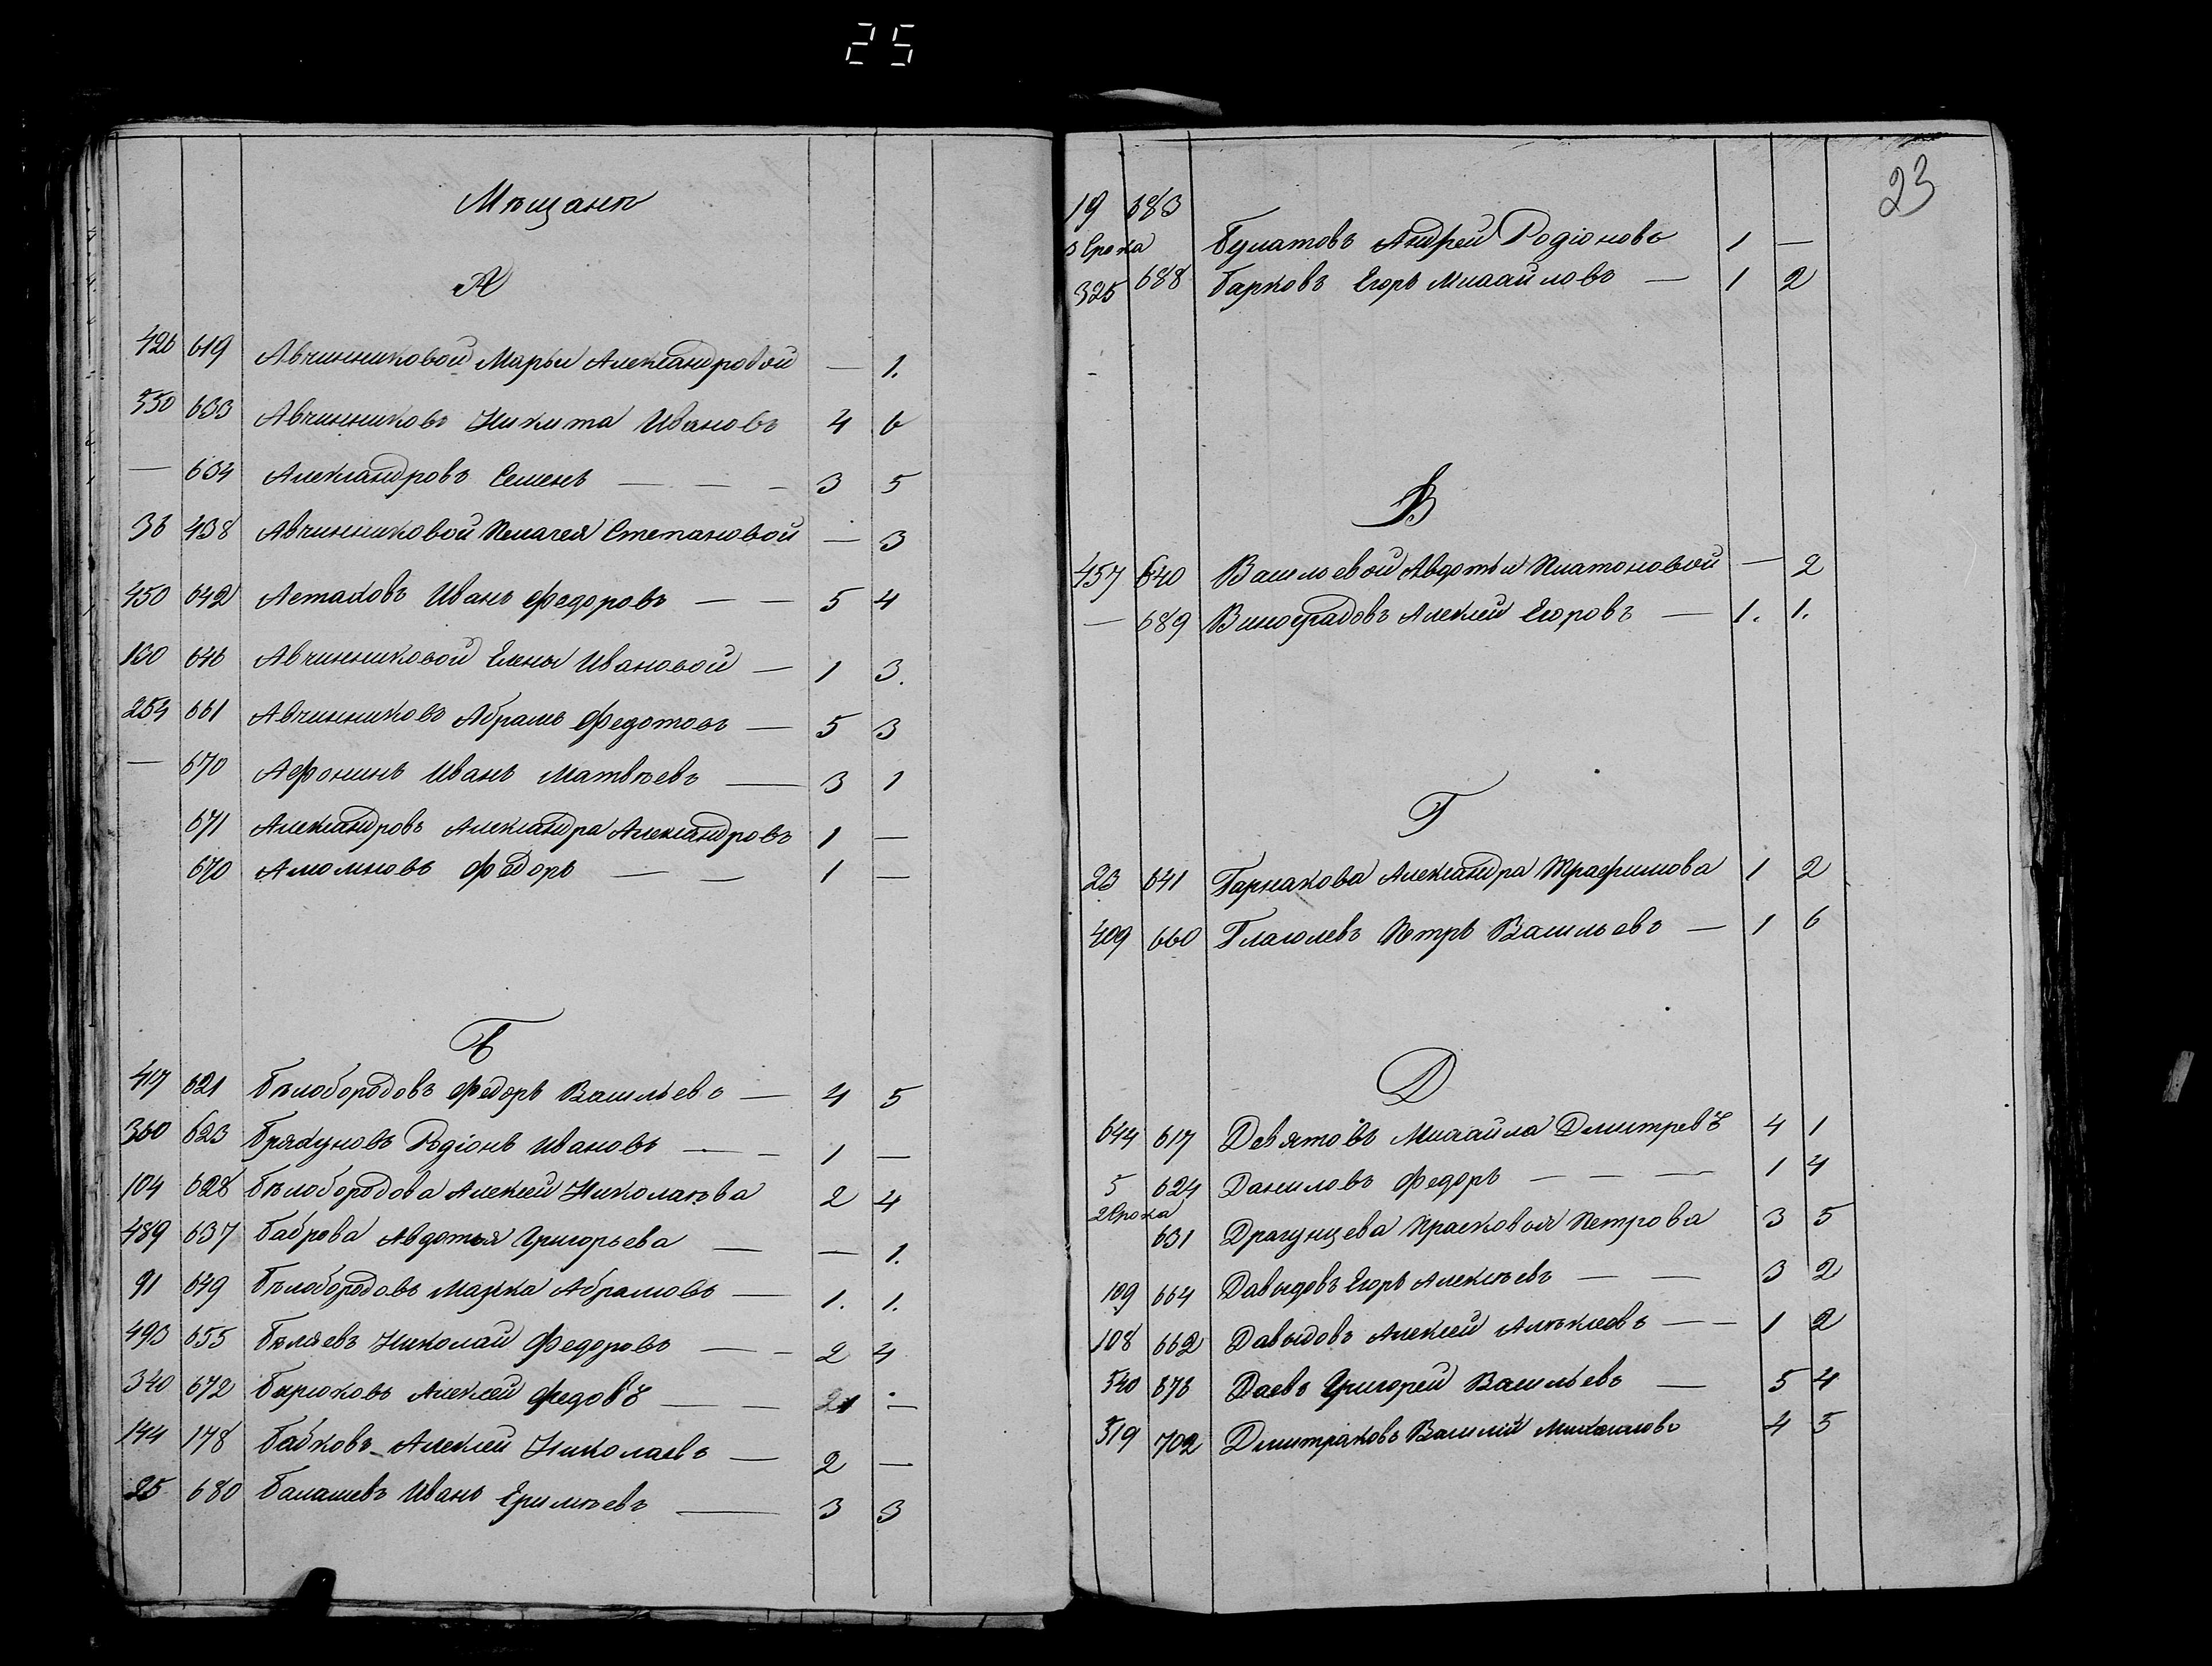 25
Мѣщанъ
А
426 619 Авчинниковой Марьи Александровой — 1.
550 633 Авчинниковъ Никита Ивановъ 4 6
— 634 Александровъ Семенъ — — — 3 5
36 438 Авчинниковой Пелагея Степановой — 3
450 642 Астаховъ Иванъ Федоровъ — — 5 4
130 646 Авчинниковой Елены Ивановой — 1 3.
254 661 Авчинниковъ Абрамъ Федотовъ — 5 3
— 670 Афонинъ Иванъ Матвѣевъ — 3 1
671 Александровъ Александра Александровъ 1 —
670 Федоръ — — 1 —
Б
417 621 Бѣлобородовъ Федоръ Васильевъ — 4 5
360 623 Родіонъ Ивановъ — — 1 —
104 628 Бѣлобородова Алексей Николаева 2 4
489 637 Баброва Авдотья Григорьева — — 1.
91 649 Бѣлобородовъ Марка Абрамовъ — 1. 1.
493 655 Бѣляевъ Николай Федоровъ — — 2 4
340 672 Бирюковъ Алексей Федовъ — — 1 —
144 178 Бабковъ Алексей Николаевъ — 2 —
25 680 Балашевъ Иванъ Еримѣевъ — 3 3
23
19 683
Булатовъ Андрей Родіоновъ 1 —
325 688 Барковъ Егоръ Михайловъ — 1 2
В
457 640 Васильевой Авдотьи Платоновой — 2
— 689 Виноградовъ Алексей Егоровъ — 1. 1.
Г
23 641 Гарнакова Александра Трафимова 1 2
409 660 Глаголевъ Петръ Васильевъ — 1 6
Д
644 617 Девятовъ Михайла Дмитревъ 4 1
5 624 Даниловъ Федоръ — — — 1 4
2 Срока
631 Драгунцева Прасковья Петрова 3 5
109 664 Давыдовъ Егоръ Алексѣевъ — — 3 2
108 662 Давыдовъ Алексей Алѣксѣевъ — — 1 2
540 676 Даевъ Григорей Васильевъ — 5 4
519 702 Дмитраковъ Василій Михайловъ 4 5